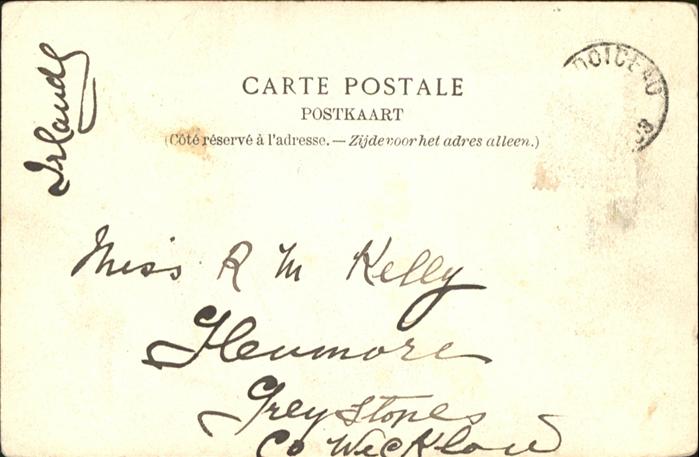 Irlande
DOICEAU
CARTE POSTALE
POSTKAART
(Côté réservé à l'adresse. — Zijde voor het adres alleen.)
Miss R M Kelly
Glenmore
Greystones
Co Wicklow